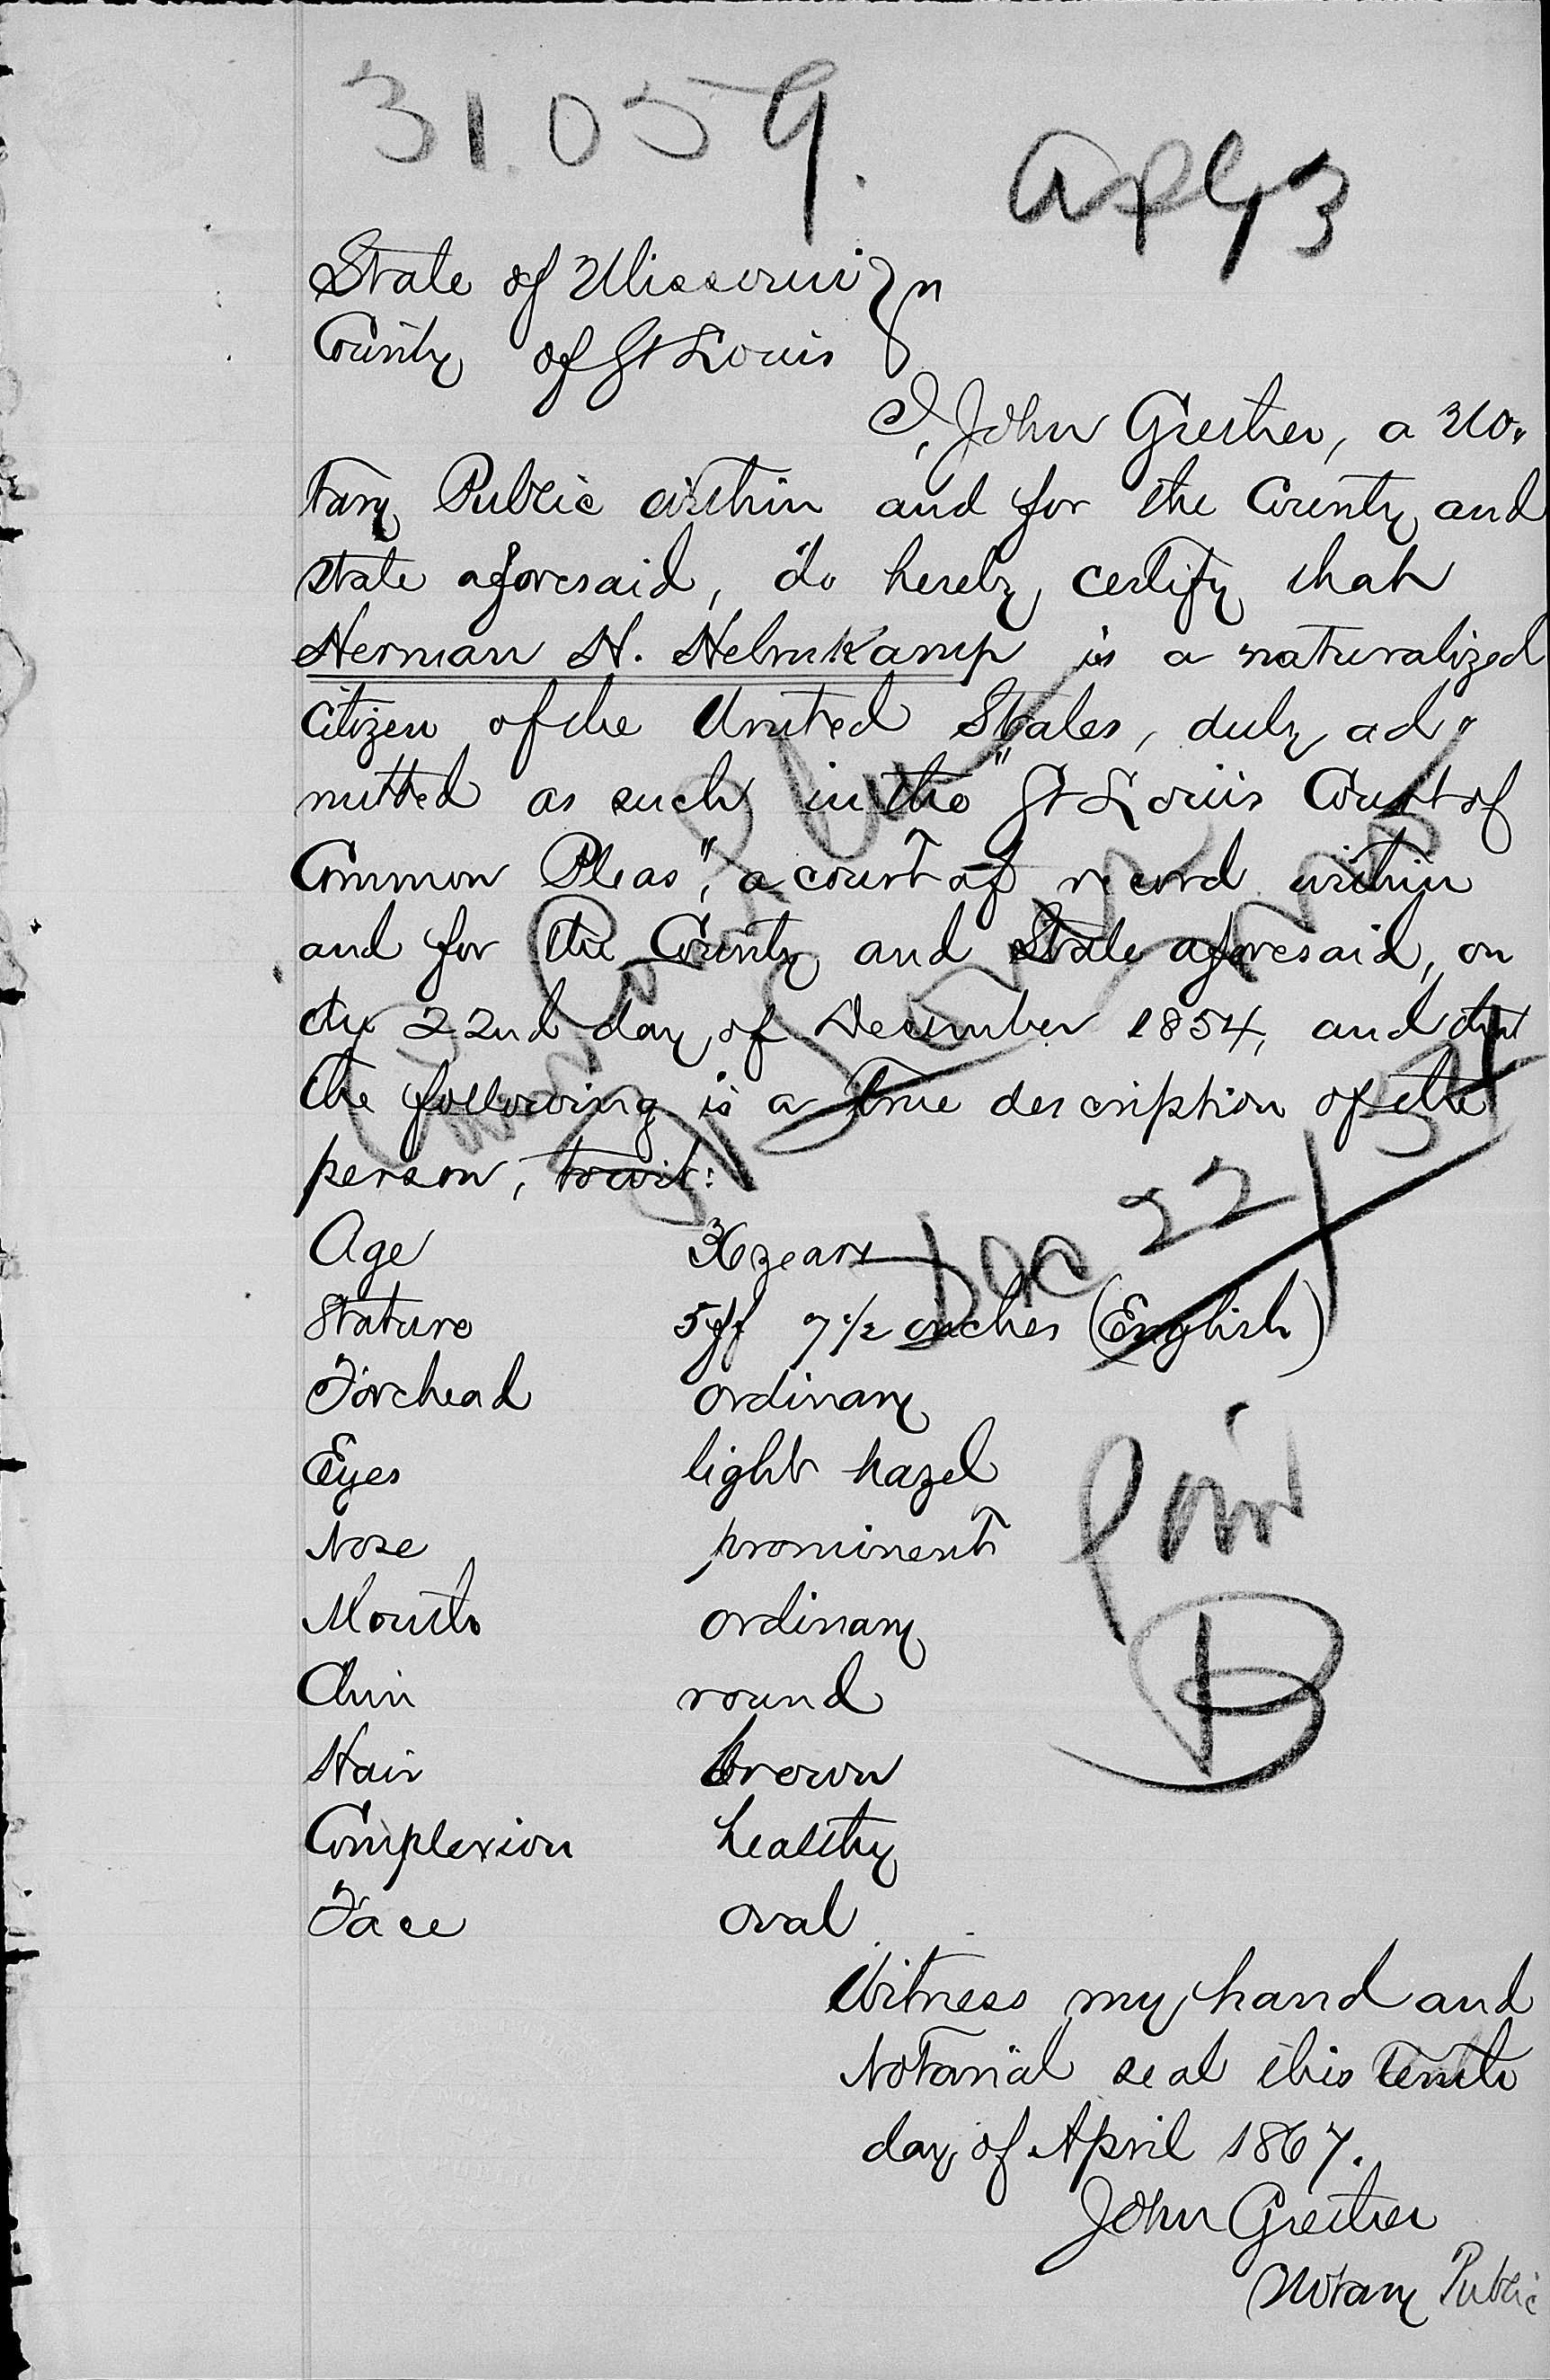 31.059.
State of Missouri
County of St Louis
I, John Greither, a No-
tary Public within and for the County and
state aforesaid, do hereby certify that
Herman H. Helmkamp is a naturalized
citizen of the United States, duly ad-
mitted as such in the "St Louis Court of
Common Pleas", a court of record within
and for the County and State aforesaid, on
the 22nd day of December 1854, and that
the following is a true description of the
person, towit:
Age 36 years
Stature 5 ff 7 1/2 inches (English)
Forehead ordinary
Eyes light hazel
Nose prominent
Mouth ordinary
Chin round
Hair brown
Complexion healthy
Face oval
Dec 22
Witness my hand and
Notarial seal this tenth
day of April 1867.
John Greither
Notary Public